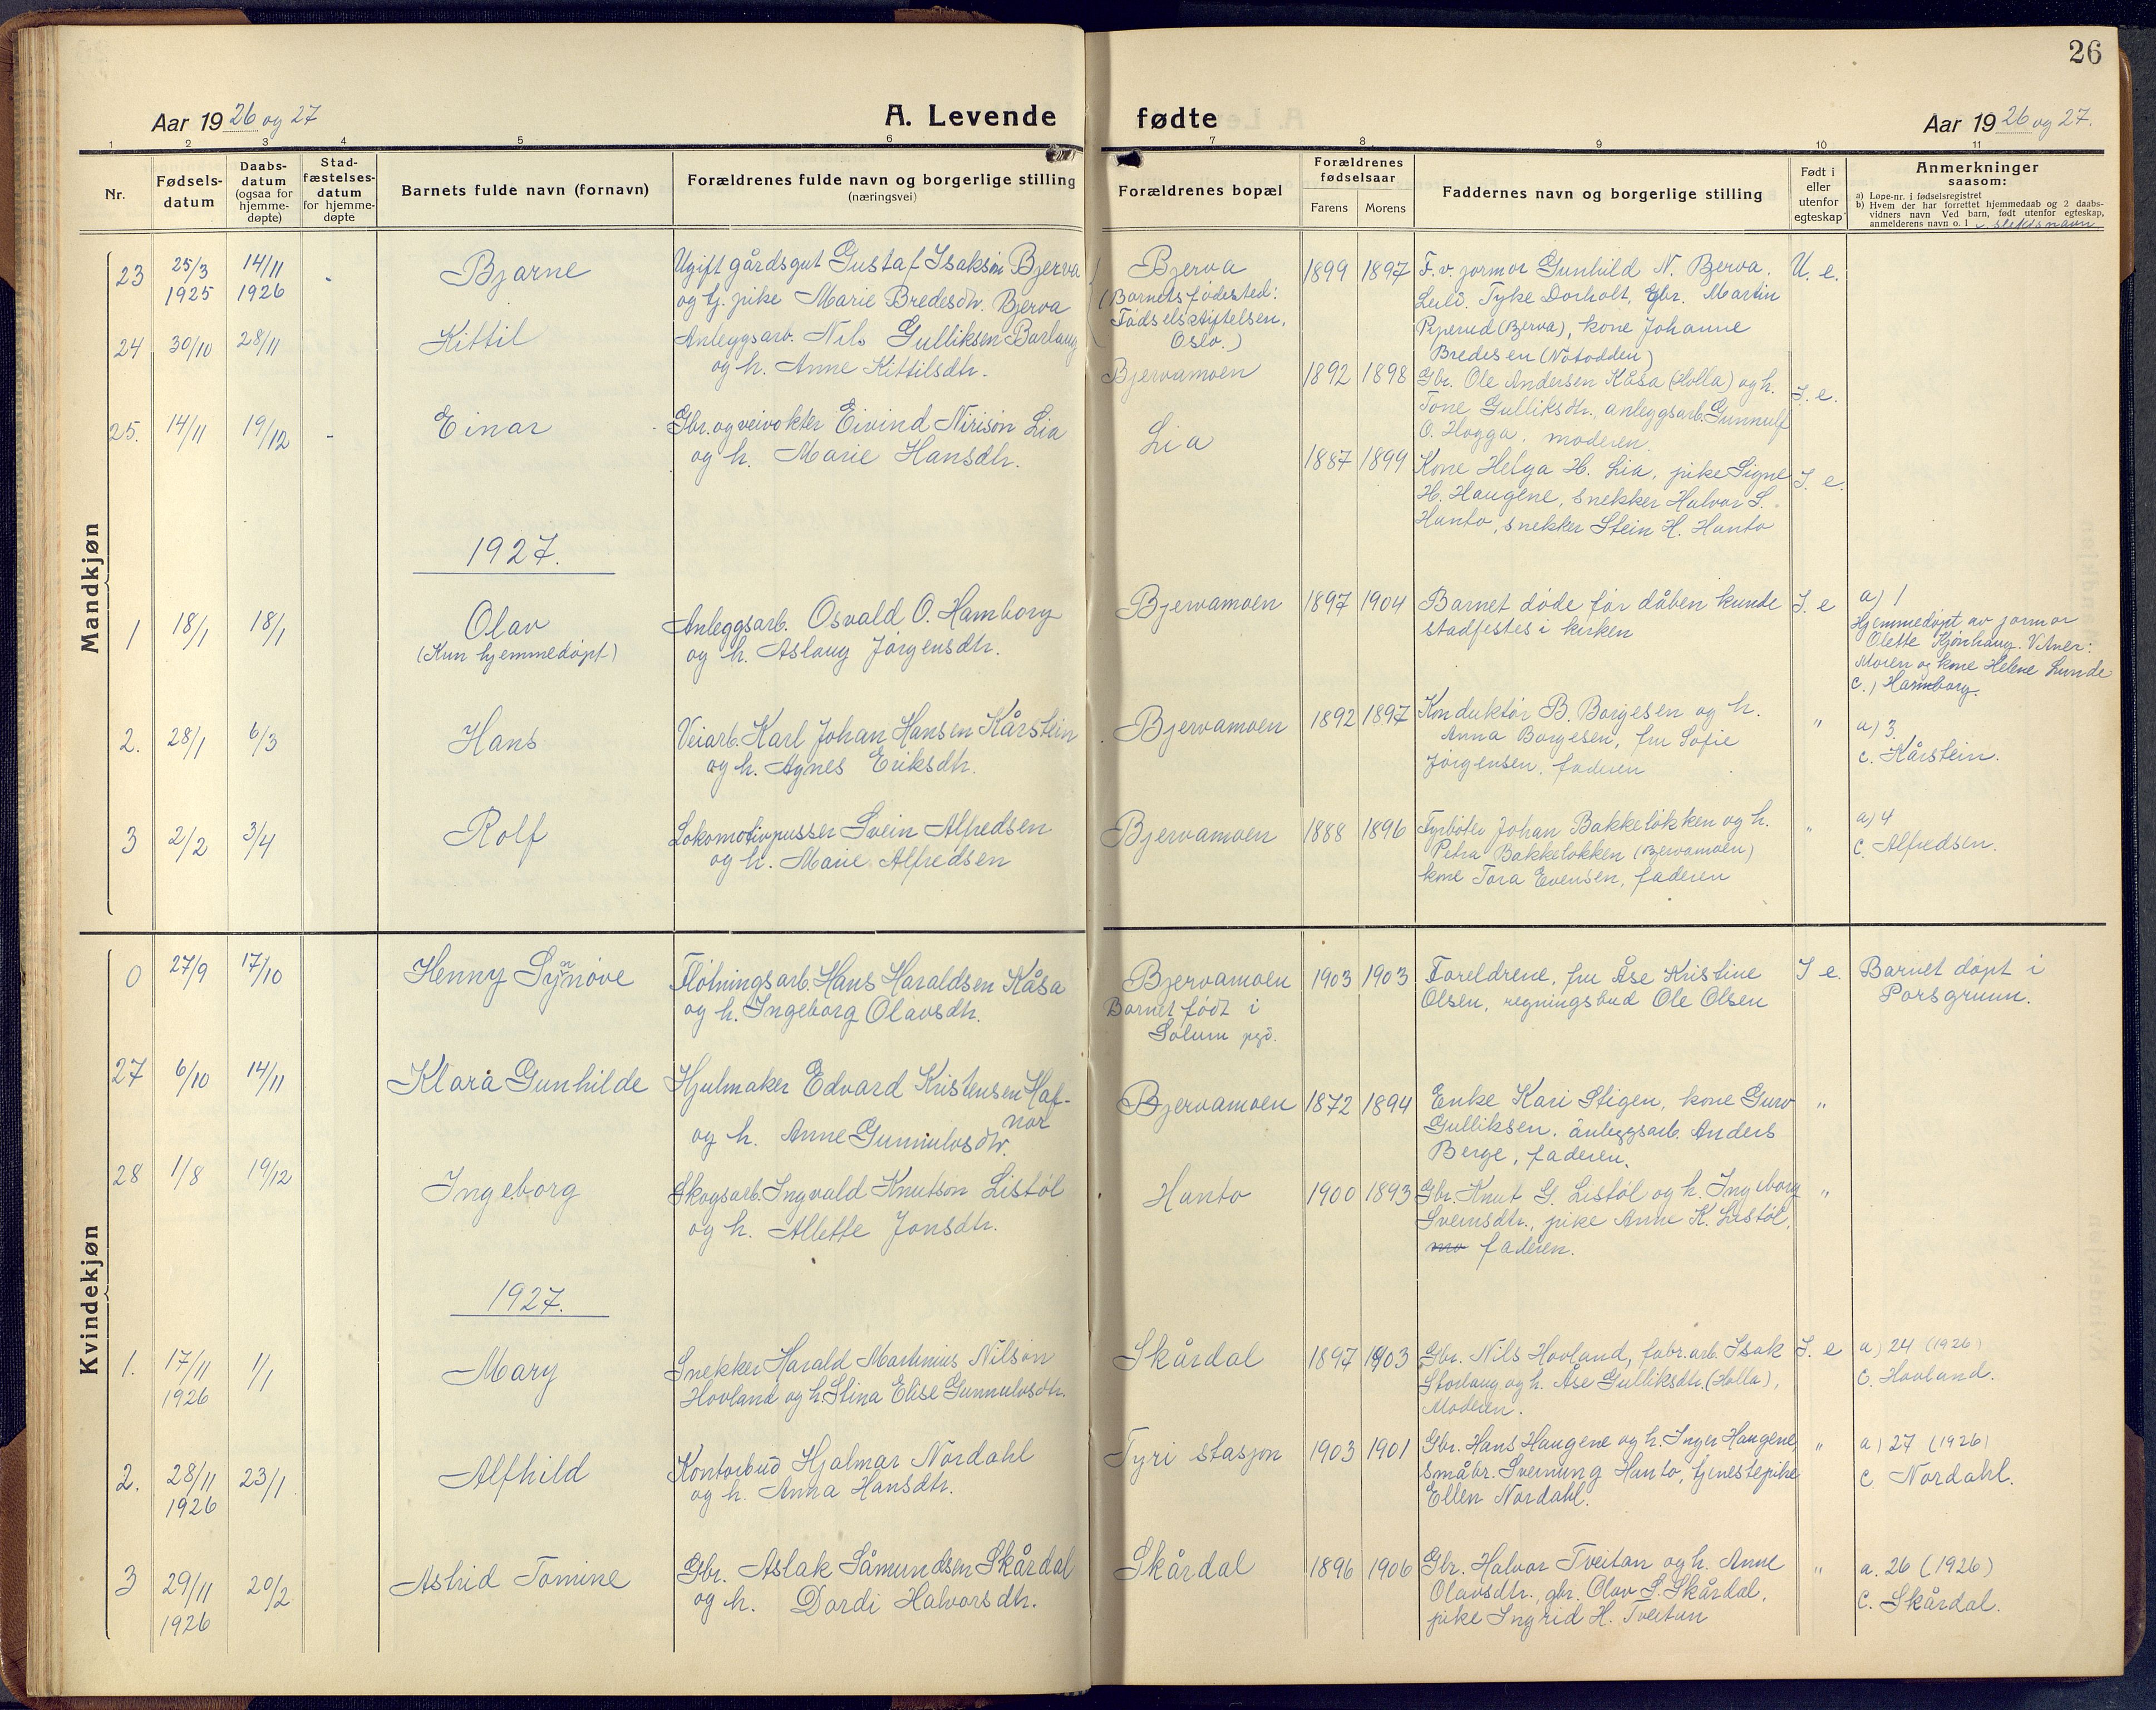 26
Aar 1926 og 27
A. Levende
fødte
Aar 1926 og 27.
1 2 3 4 5 6 7 8 9 10 11
Nr.
Fødsels-
datum
Daabs-
datum
(ogsaa for
hjemme-
døpte)
Stad-
fæstelses-
datum
for hjemme-
døpte
Barnets fulde navn (fornavn)
Forældrenes fulde navn og borgerlige stilling
(næringsvei)
Forældrenes bopæl
Forældrenes
fødselsaar
Farens Morens
Faddernes navn og borgerlige stilling
Født i
eller
utenfor
egteskap
Anmerkninger
saasom:
a) Løpe-nr. i fødselsregistret
b) Hvem der har forrettet hjemmedaab og 2 daabs-
vidners navn Ved barn, født utenfor egteskap,
anmelderens navn o. l. c. slektsnavn
Mandkjøn
23
25/3
1925
14/11
1926
-
Bjarne
Ugift gårdsgut Gustaf Isaksøn Bjerva
og Ug. pike Marie Bredesdtr. Bjerva
Bjerva
(Barnets fødested:
Fødselsstiftelsen,
Oslo.)
1899 1897
F. v. jormor Gunhild N. Bjerva.
Tyke Dorholt, Gbr. Martin
(Bjerva), kone Johanne
Bredesen (Notodden)
U. e.
24
30/10
28/11
Kittil
Anleggsarb. Nils Gulliksen Barlaug
og h. Anne Kittilsdtr.
Bjervamoen
1892 1898
Gbr. Ole Andersen Kåsa (Holla) og h.
Tone Gulliksdtr., anleggsarb. Gunnulf
O. Hogga, moderen.
I. e.
25.
14/11
19/12
-
Einar
Gbr. og veivokter Eivind Nirisøn Lia
og h. Marie Hansdtr.
Lia
1887 1899
Kone Helga H. Lia, pike Signe
H. Haugene, snekker Halvor S.
Hanto, snekker Stein H. Hanto
I. e.
1927.
1
18/1
18/1
Olav
(Kun hjemmedøpt)
Anleggsarb. Osvald O. Hamborg
og h. Aslaug Jørgensdtr.
Bjervamoen
1897 1904
Barnet døde før dåben kunde
stadfestes i kirken
I. e
a) 1
Hjemmedøpt av jormor
Olette Kjønhaug. Vitner:
Moren og kone Helene Lunde
c.) Hamborg.
2.
28/1
6/3
Hans
Veiarb. Karl Johan Hansen Kårstein
og h. Agnes Eriksdtr.
Bjervamoen
1892 1897
Konduktør B. Borgesen og h.
Anna Borgesen, fru Sofie
Jørgensen, faderen
"
a) 3.
c. Kårstein.
3
2/2
3/4
Rolf
Lokomotivpusser Svein Alfredsen
og h. Marie Alfredsen
Bjervamoen
1888 1896
Fyrbøter Johan Bakkeløkken og h.
Petra Bakkeløkken (Bjervamoen)
kone Tora Evensen, faderen
"
a) 4
c. Alfredsen.
Kvindekjøn
0
27/9
17/10
Henny Synnøve
Fløtningsarb. Hans Haraldsen Kåsa
og h. Ingeborg Olavsdtr.
Bjervamoen
Barnet født i
Solum pgd.
1903 1903
Foreldrene, fru Åse Kristine
Olsen, regningsbud Ole Olsen
I e.
Barnet døpt i
Porsgrunn.
27
6/10
14/11
Klara Gunhilde
Hjulmaker Edvard Kristensen Haf-
nor
og h. Anne Gunnulvsdtr.
Bjervamoen
1872 1894
Enke Kari Stigen, kone Guro
Gulliksen, anleggsarb. Anders
Berge, faderen.
"
28
1/8
19/12
Ingeborg
Skogsarb. Ingvald Knutson Listøl
og h. Allette Jonsdtr.
Hanto
1900 1893
Gbr. Knut G. Listøl og h. Ingeborg
Sveinsdtr., pike Anne K. Listøl,
mo faderen.
"
1927.
1.
17/11
1926
1/1
Mary
Snekker Harald Martinius Nilsøn
Hovland og h. Stina Elise Gunnulvsdtr.
Skårdal
1897 1903
Gbr. Nils Hovland, fabr. arb. Isak
Storlaug og h. Åse Gulliksdtr. (Holla),
Moderen.
I. e
a) 24 (1926)
c. Hovland.
2.
28/11
1926
23/1
Alfhild
Kontorbud Hjalmar Nordahl
og h. Anna Hansdtr.
Tyri stasjon
1903 1901
Gbr. Hans Haugene og h. Inger Haugene,
småbr. Sveinung Hanto, tjenestepike
Ellen Nordahl.
"
a) 27 (1926)
c. Nordahl.
3
29/11
1926
20/2
Astrid Tomine
Gbr. Aslak Såmundsen Skårdal
og h. Dordi Halvorsdtr.
Skårdal
1896 1906
Gbr. Halvor Tveitan og h. Anne
Olavsdtr., gbr. Olav S. Skårdal,
pike Ingrid H. Tveitan
"
a. 26 (1926)
c. Skårdal.